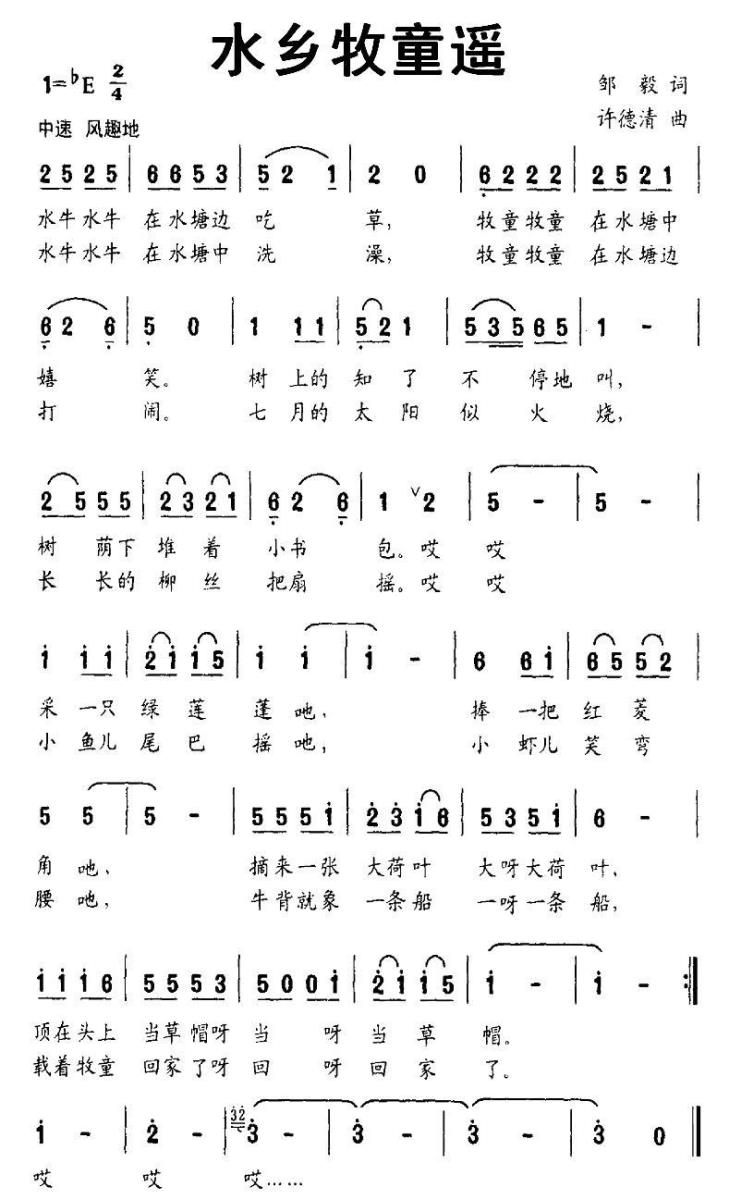 水乡牧童遥
1=♭E 2/4
邹 毅 词
中速 风趣地
许德清 曲
2 5 2 5 | 6 6 5 3 | 5 2 1 | 2 0 | 6 2 2 2 | 2 5 2 1 |
水牛水牛 在水塘边 吃 草, 牧童牧童 在水塘中
水牛水牛 在水塘中 洗 澡, 牧童牧童 在水塘边
6 2 6 | 5 0 | 1 1 1 | 5 2 1 | 5 3 5 6 5 | 1 - |
嬉 笑。 树 上的 知 了 不 停地 叫,
打 闹。 七 月的 太 阳 似 火 烧,
2 5 5 5 | 2 3 2 1 | 6 2 6 | 1 ∨ 2 | 5 - | 5 - |
树 荫下 堆 着 小书 包。哎 哎
长 长的 柳 丝 把扇 摇。哎 哎
1 1 1 | 2 1 1 5 | 1 1 | 1 - | 6 6 1 | 6 5 5 2 |
采 一只 绿 莲 蓬 吔, 捧 一把 红 菱
小 鱼儿 尾 巴 摇 吔, 小 虾儿 笑 弯
5 5 | 5 - | 5 5 5 1 | 2 3 1 6 | 5 3 5 1 | 6 - |
角 吔, 摘来一张 大荷叶 大呀大荷 叶,
腰 吔, 牛背就象 一条船 一呀一条 船,
1 1 1 6 | 5 5 5 3 | 5 0 0 1 | 2 1 1 5 | 1 - | 1 - :‖
顶在头上 当草帽呀 当 呀 当 草 帽。
载着牧童 回家了呀 回 呀 回 家 了。
1 - | 2 - | 3 2 3 - | 3 - | 3 - | 3 0 ‖
哎 哎 哎……